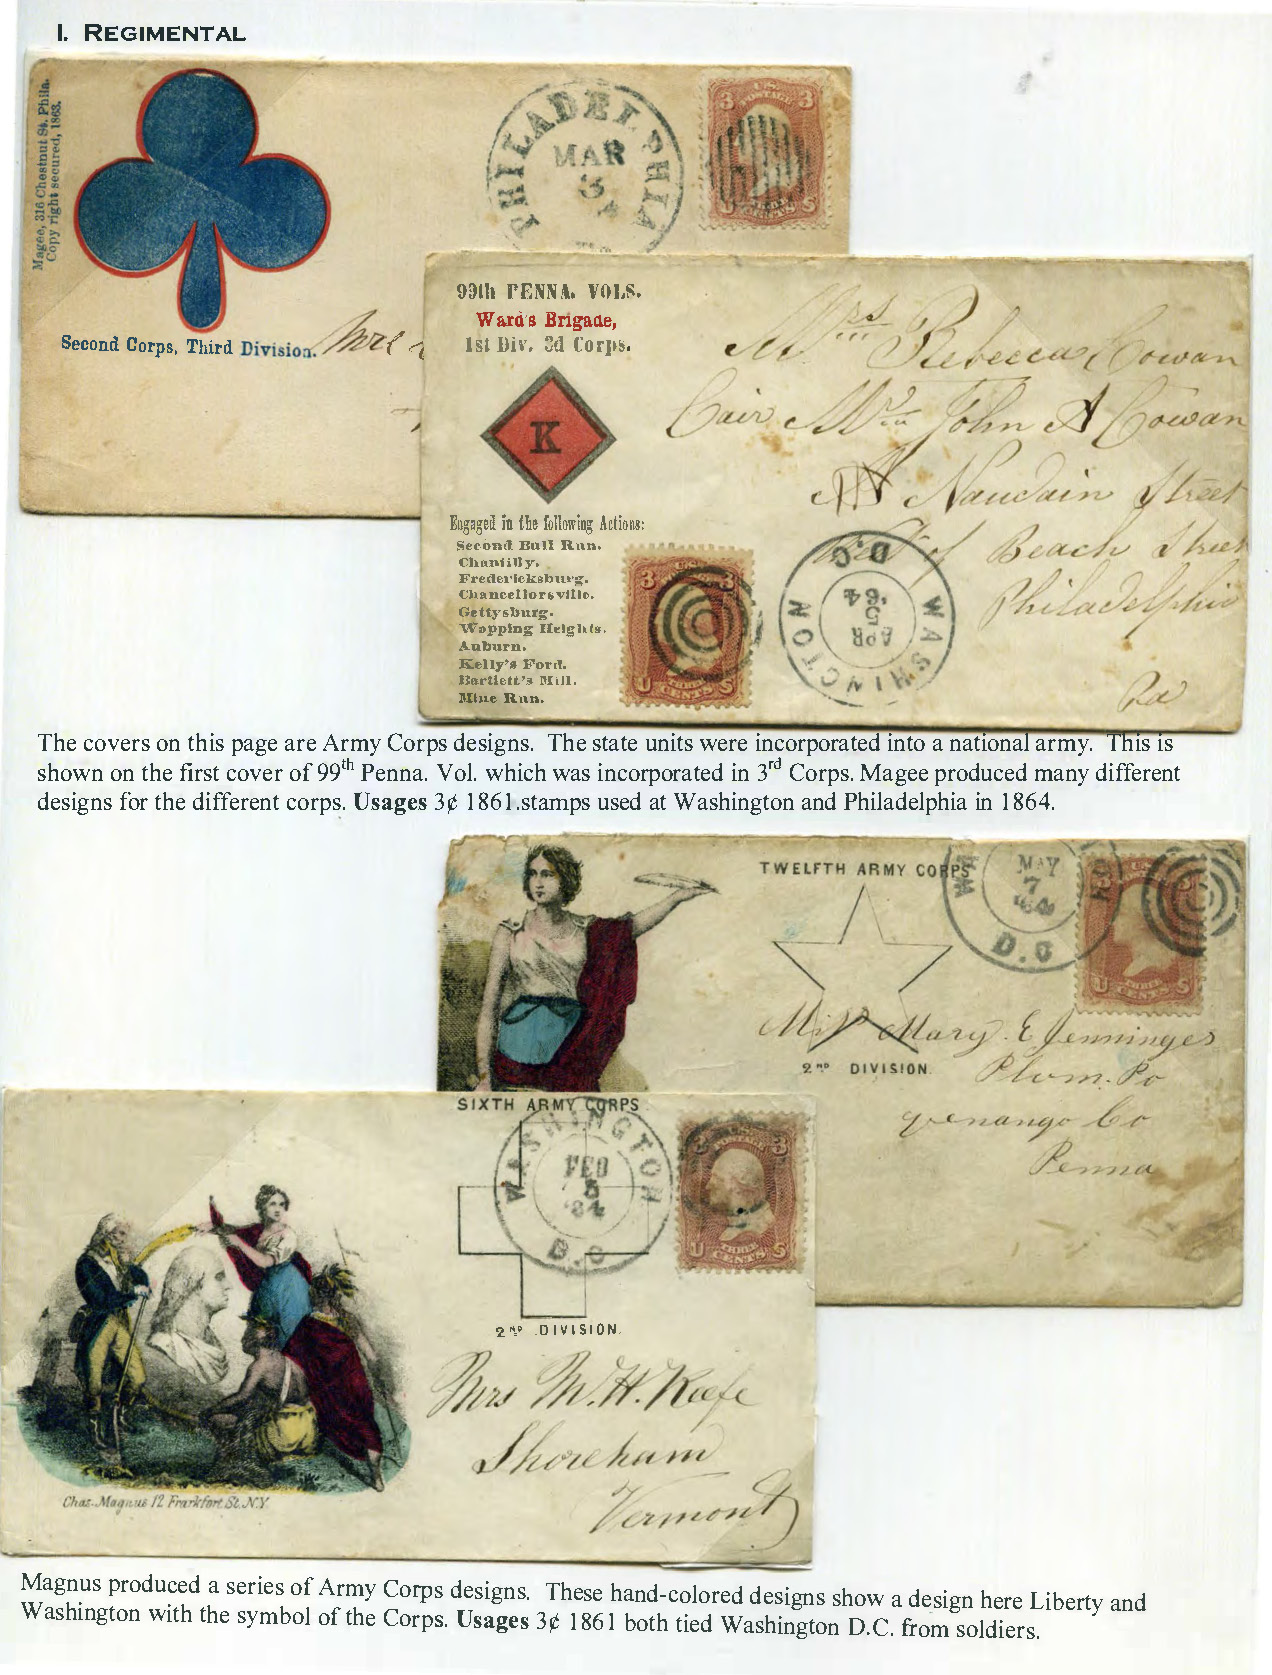 I. REGIMENTAL
Magee, 316 Chestnut St. Phila.
Copy right secured, 1863.
Second Corps, Third Division.
PHILADELPHIA
MAR
3
3 3
U.S.
POSTAGE
U S
Mrs
99th PENNA. VOLS.
Ward's Brigade,
1st Div. 3d Corps.
K
Engaged in the following Actions:
Second Bull Run.
Chantilly.
Fredericksburg.
Chancellorsville.
Gettysburg.
Wapping Heights.
Auburn.
Kelly's Ford.
Bartlett's Mill.
Mine Run.
3 3
U THREE S
CENTS
WASHINGTON
D.C.
APR
5
'64
Mrs Rebecca Cowan
Cair Mr John A Cowan
Naudain Street
of Beach Street
Philadelphia
Pa
The covers on this page are Army Corps designs. The state units were incorporated into a national army. This is
shown on the first cover of 99th Penna. Vol. which was incorporated in 3rd Corps. Magee produced many different
designs for the different corps. Usages 3¢ 1861.stamps used at Washington and Philadelphia in 1864.
TWELFTH ARMY CORPS
2ND DIVISION.
MAY
7
'64
D.C
U CENTS S
Miss Mary E Jenninges
Plum. Po
venango Co
Penna
SIXTH ARMY CORPS
2ND DIVISION.
WASHINGTON
FEB
5
'64
D.C
3
U THREE S
CENTS
Chas. Magnus 12 Frankfort St. N.Y.
Mrs M. H. Keefe
Shoreham
Vermont
Magnus produced a series of Army Corps designs. These hand-colored designs show a design here Liberty and
Washington with the symbol of the Corps. Usages 3¢ 1861 both tied Washington D.C. from soldiers.